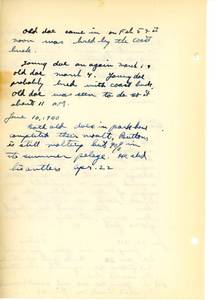 Old doe came in on Feb 5 & at
noon was bred by the coast
buck.
Young doe on again March 1 &
old doe March 4. Young doe
probably bred with coast buck.
Old doe was seen to do so at
about 11 A.M.
June 10, 1940
Both old does in good
completed their moult. Buttons
is still molting but 9/10 in
to summer pelage. He shed
his antlers Apr. 22